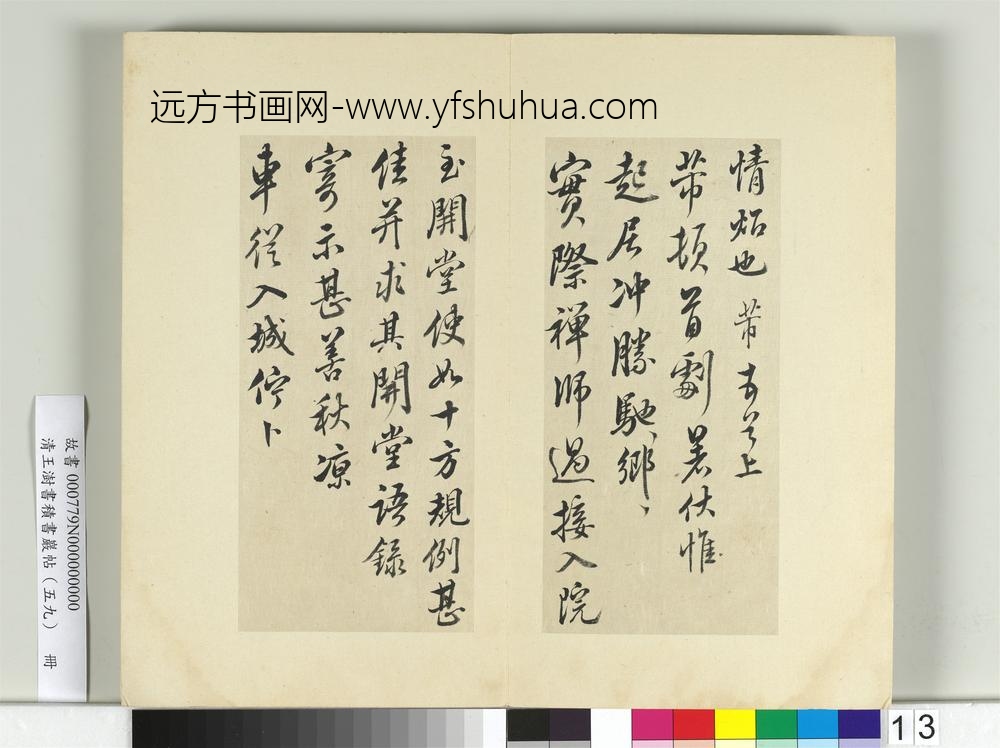 远方书画网-www.yfshuhua.com
情炤也 芾 上
芾頓首劇暑伏惟
起居冲勝馳鄉、
實際禪師過接入院
至開堂使如十方規例甚
佳并求其開堂語錄
寄示甚善秋凉
車從入城佇卜
故書 000779N000000000
清王澍書積書巖帖（五九） 冊
13